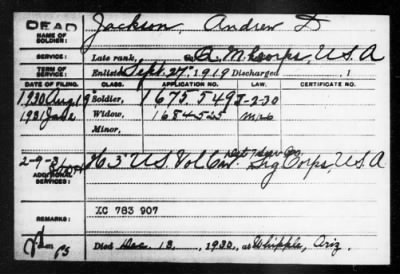 DEAD
Jackson, Andrew D
NAME OF SOLDIER:
SERVICE: Late rank, Q. M. Corps, U.S.A
TERM OF SERVICE: Enlisted Sept. 27" 1919 Discharged , 1
DATE OF FILING. CLASS. APPLICATION NO. LAW. CERTIFICATE NO.
1930 Aug 19" Soldier, 1675.549 J-2-30
1931 Widow, 1684525
Minor,
2-9-3
ADDITIONAL SERVICES: Co 3" U.S. Vol Cav. Sig Corps, U.S.A
REMARKS: XC 783 907
Died Dec. 13, 1930, at Whipple, Ariz.